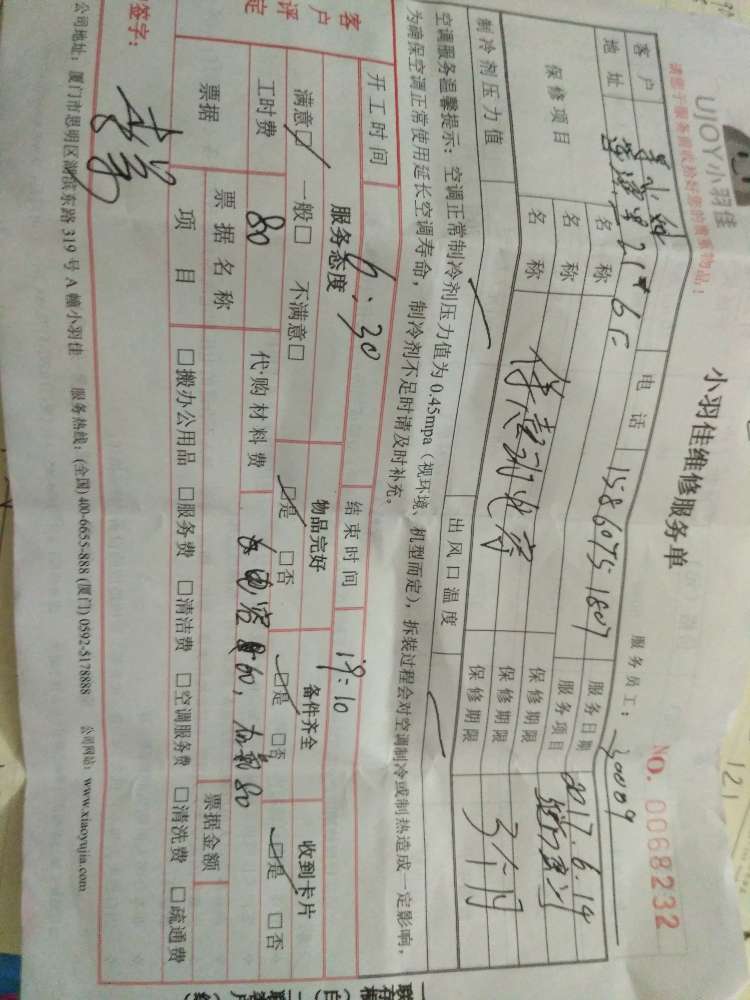 UJOY小羽佳
请您于服务前收拾好您的贵重物品!
小羽佳维修服务单
NO. 0068232
服务员工: 30009
客户 电话 15860751807 服务日期 2017.6.19
地址 2C#6F 服务项目
保修项目 名称 保修期限
名称 保修期限 3个月
名称 保修期限
制冷剂压力值 出风口温度
空调服务温馨提示: 空调正常制冷剂压力值为 0.45mpa (视环境、机型而定), 拆装过程会对空调制冷或制热造成一定影响,
为确保空调正常使用延长空调寿命, 制冷剂不足时请及时补充。
开工时间 6:30 结束时间 19:10
客户评定 服务态度 物品完好 备件齐全 收到卡片
满意□ 一般□ 不满意□ □是 □否 □是 □否 □是 □否
工时费 80 代·购材料费 60, 80
票据 票据名称 票据金额
项目 □搬办公用品 □服务费 □清洁费 □空调服务费 □清洗费 □疏通费
签字:
公司地址: 厦门市思明区湖滨东路 319 号 A 幢小羽佳 服务热线: (全国) 400-6655-888 (厦门) 0592-5178888 公司网站: www.xiaoyujia.com
121